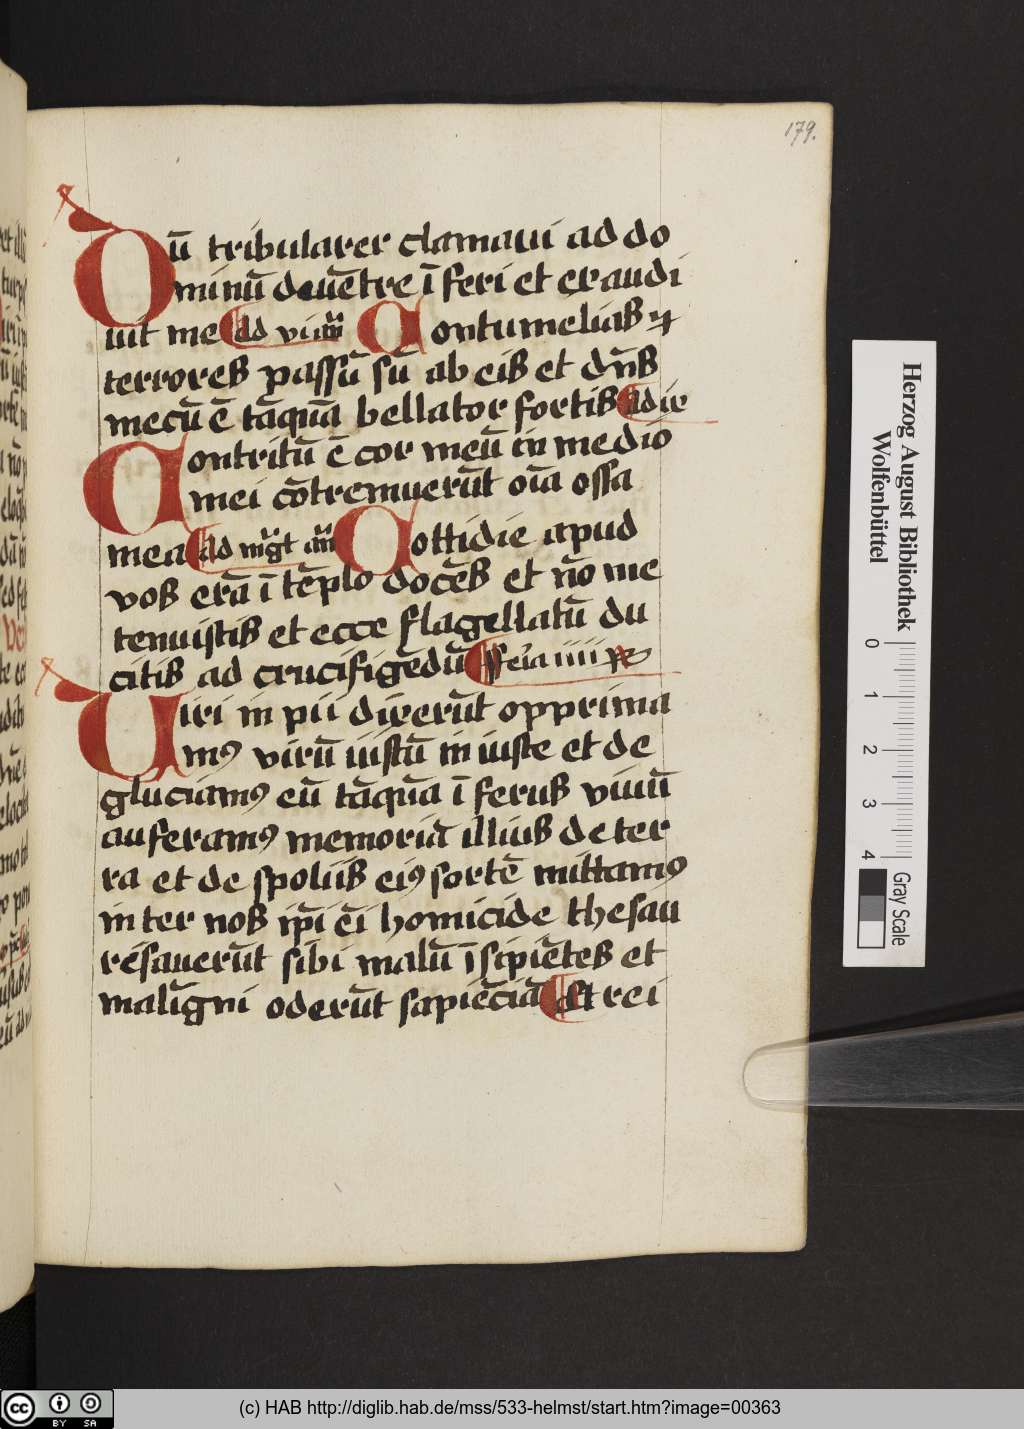 179.
Dū tribularer clamaui ad do
minū de uētre īferi et exaudi
uit me Ad vīū añ Contumelias ⁊
terrores passū sū ab eis et dn̄s
mecū ē tāquā bellator fortis Ad ie
Contritū ē cor meū in medio
mei cōtremuerūt oīa ossa
mea Ad mg̅t añ Cottidie apud
vos erā ī tēplo docēs et nō me
tenuistis et ecce flagellatū du
citis ad crucifigēdū fer̄ia iiii ℟
Uiri inpii dixerūt opprima
mꝰ virū iustū in iuste et de
gluciamꝰ eū tāquā īferus viuū
auferamꝰ memoriā illius de ter
ra et de spoliis eiꝰ sortē mittamꝰ
inter nos ip̄i ēī homicide thesau
resauerūt sibi malū īsipiētes et
malīgni oderūt sapiēciā Et rei
Herzog August Bibliothek
Wolfenbüttel
0 1 2 3 4
Gray Scale
cc BY SA
(c) HAB http://diglib.hab.de/mss/533-helmst/start.htm?image=00363